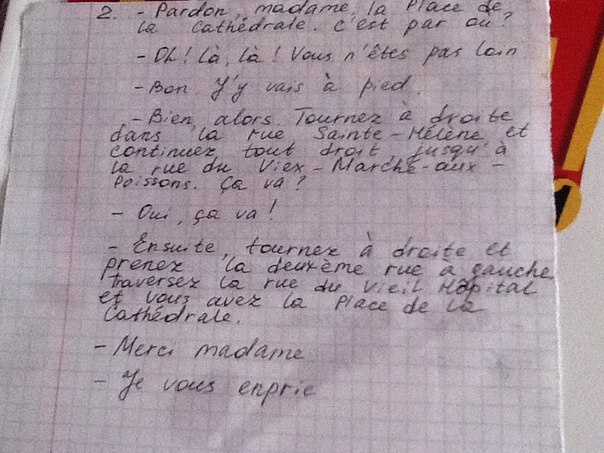 2. - Pardon, madame, la Place de
la Cathédrale. c'est par où?
- Oh! Là, là! Vous n'êtes pas loin
- Bon. Y'y vais à pied.
- Bien, alors. Tournez à droite
dans la rue Sainte-Hélène et
continuez tout droit jusqu'à
la rue du Viex-Marché-aux-
Poissons. Ça va?
- Oui, ça va!
- Ensuite, tournez à droite et
prenez la deuxème rue a gauche
traversez la rue du Vieil Hôpital
et vous avez la Place de la
Cathédrale.
- Merci madame
- Je vous enprie